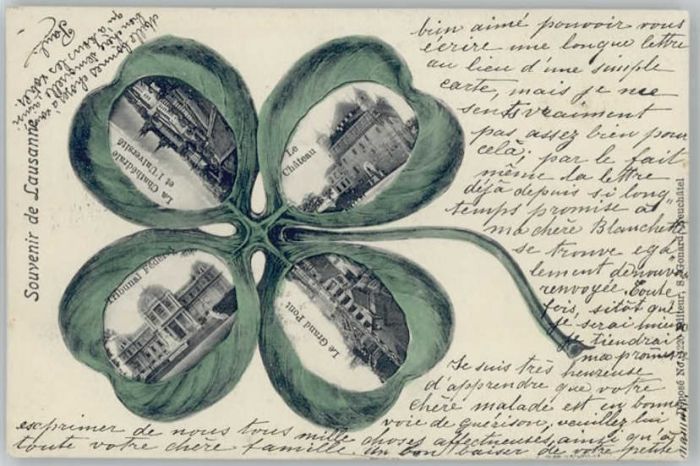 Souvenir de Lausanne
La Cathédrale
et l'Université
Le
Château
Tribunal Fédéral
Le Grand Pont
bien aimé pouvoir vous
écrire une longue lettre
au lieu d'une simple
carte, mais je me
sens vraiment
pas assez bien pour
celà; par le fait
même la lettre
déjà depuis si long
temps promise à
ma chère Blanchette
se trouve éga
lement de nouv.
renvoyée. Toute
fois, sitôt que
je serai mieux
je tiendrai
ma promesse
Je suis très heureuse
d'apprendre que votre
chère malade est en bonne
voie de guérison, veuillez lui
exprimer de nous tous mille choses affectueuses, ainsi qu'à
toute votre chère famille. Un bon baiser de votre petite
Éditeur, S. Gonard, Neuchâtel